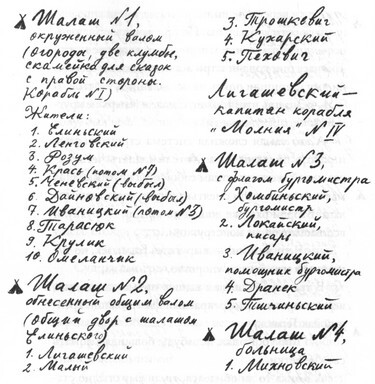 Шалаш №1,
окруженный валом
(огорода, две клумбы,
скамейка для сказок
с правой стороны.
Корабль №I)
Жители:
1. Елиньский
2. Ленговский
3. Розум
4. Крась (потом №2)
5. Ченевский (выбыл)
6. Дайновский (выбыл)
7. Иваницкий (потом №3)
8. Тарасюк
9. Крулик
10. Омеланчик
Шалаш №2,
обнесенный общим валом
(общий двор с шалашом
Елиньского)
1. Лигашевский
2. Малый
3. Трошкевич
4. Кухарский
5. Пехович
Лигашевский —
капитан корабля
"Молния" №IV
Шалаш №3,
с флагом бургомистра
1. Хомбиньский,
бургомистр
2. Локайский,
писарь
3. Иваницкий,
помощник бургомистра
4. Дранек
5. Тшчиньский
Шалаш №4,
больница
1. Михновский